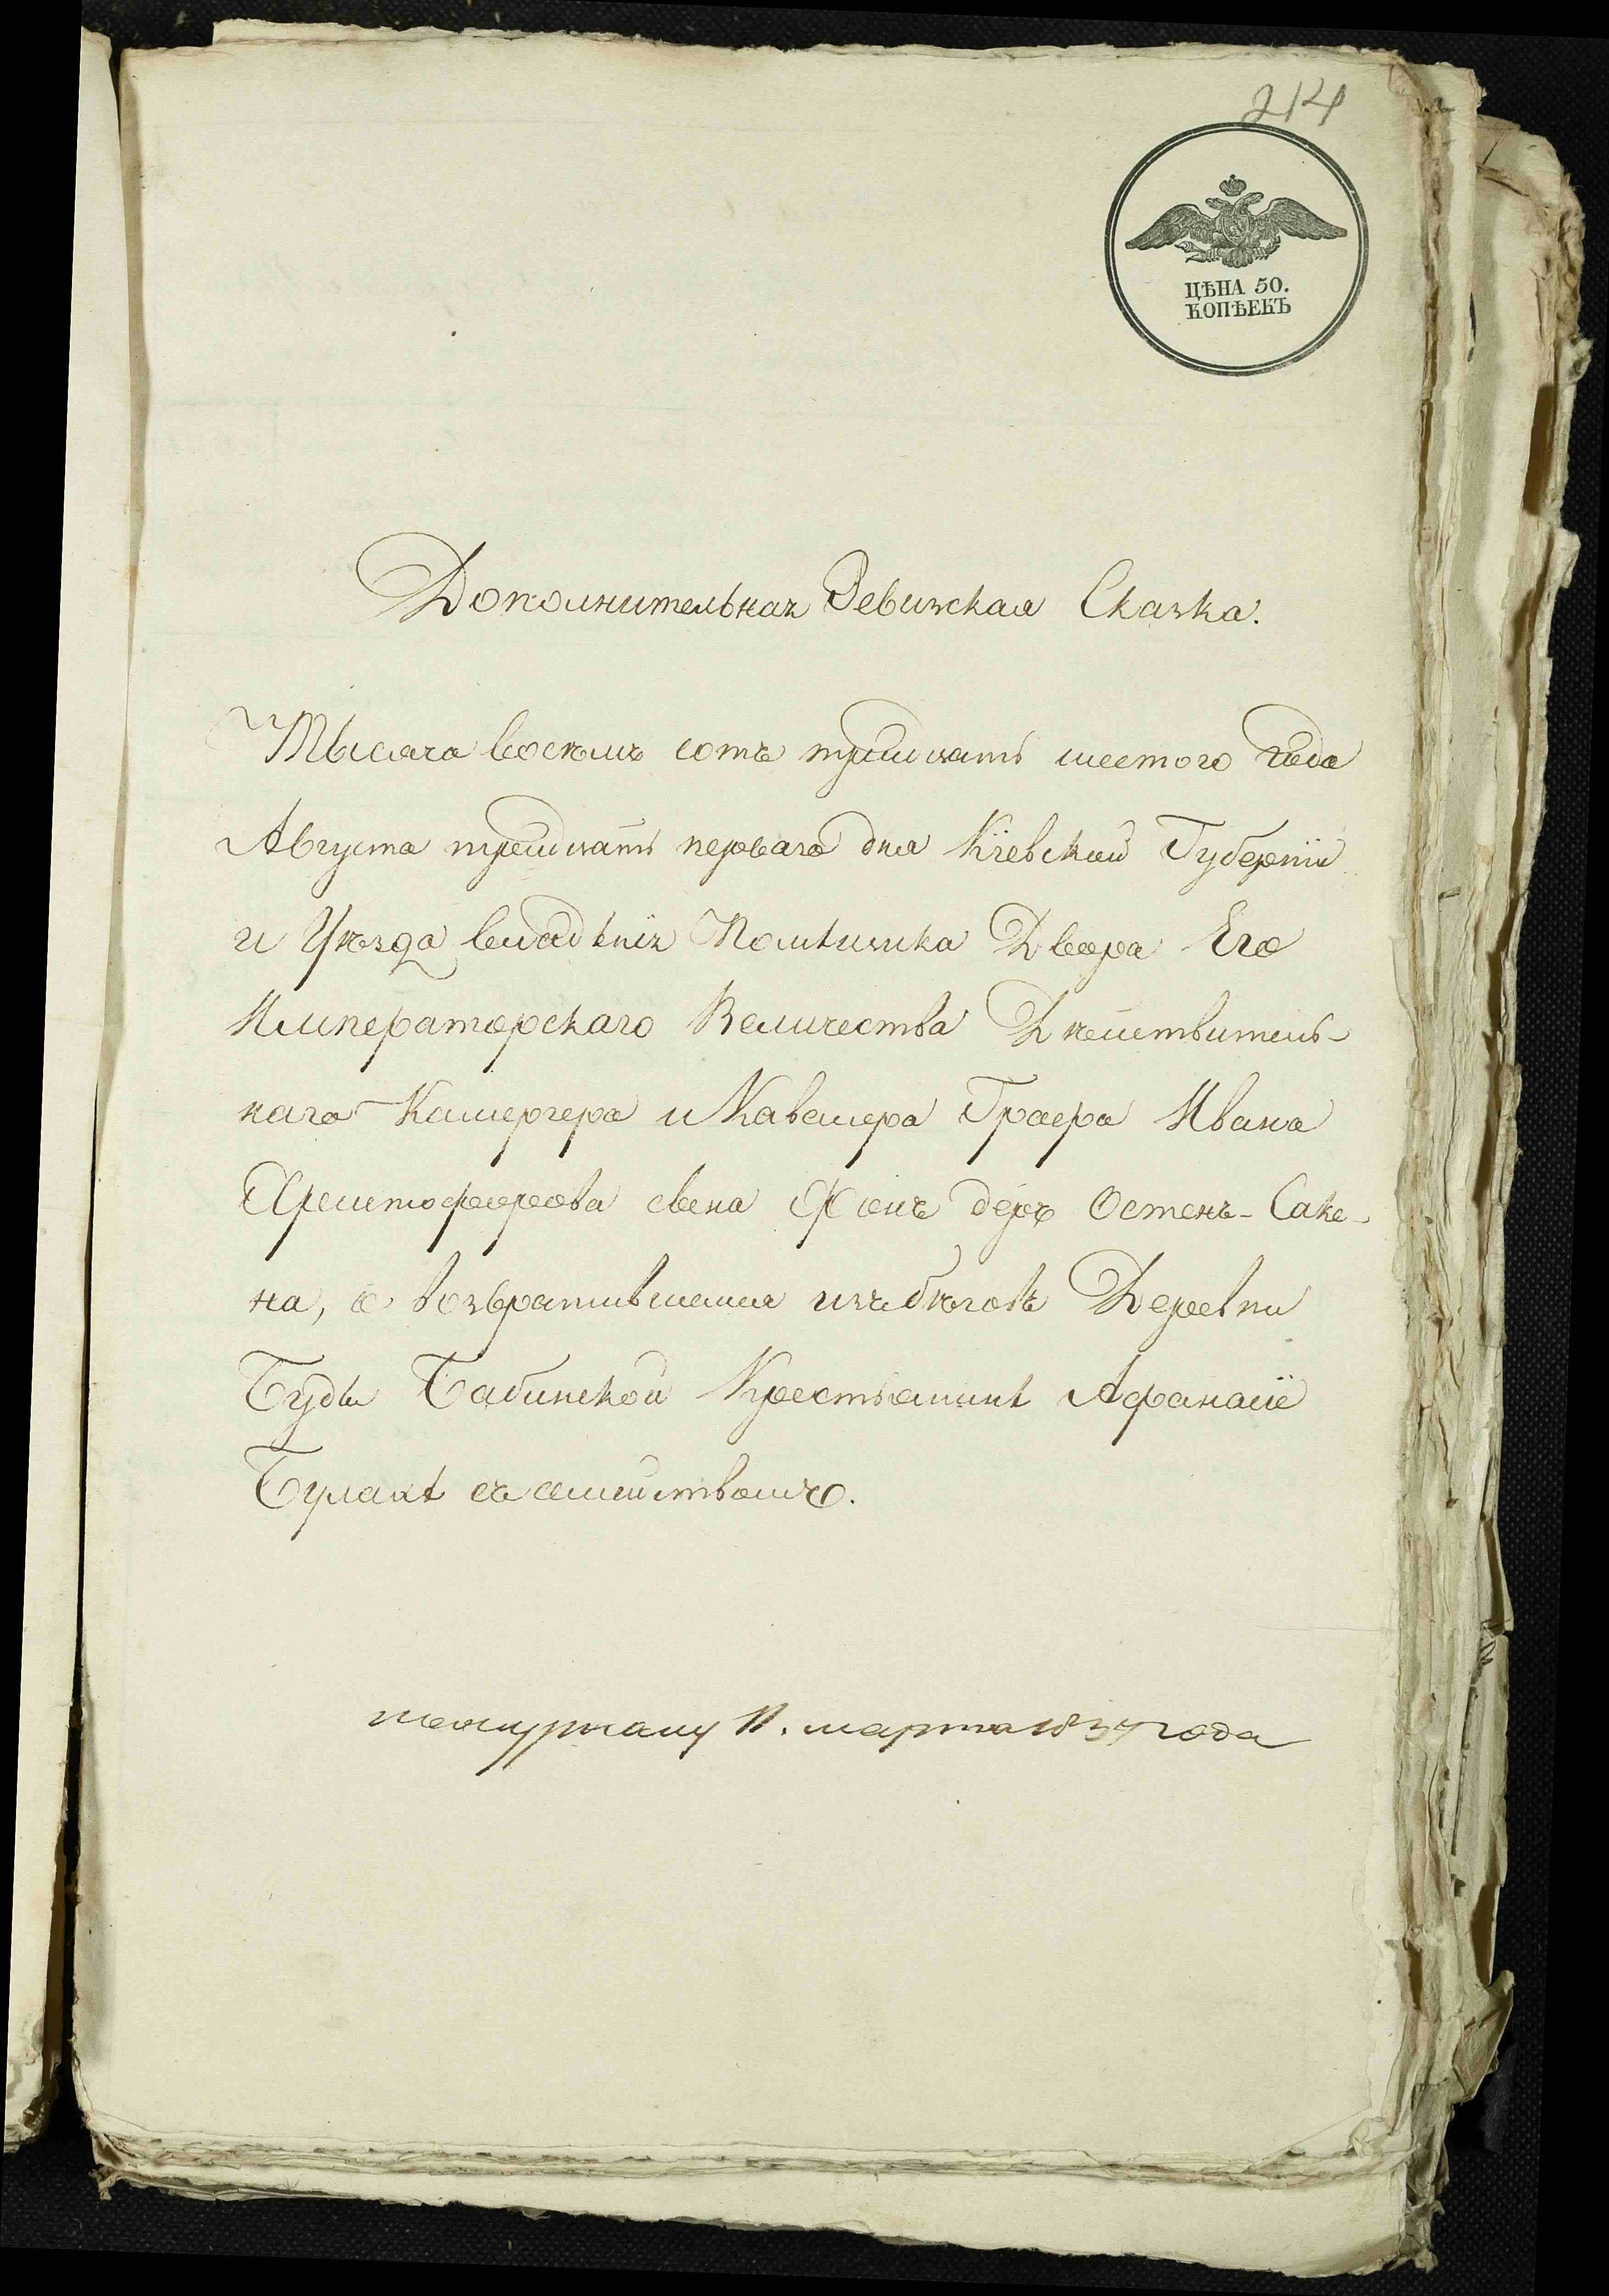 214
ЦѢНА 50.
КОПѢЕКЪ
Дополнительная Ревизская Сказка.
Тысяча восемь сотъ тридцать шестого года
Августа тридцать перваго дня Кіевской Губерніи
и Уѣзда владѣнія Помѣщика Двора Его
Императорскаго Величества Дѣйствитель-
наго Камергера и Кавалера Графа Ивана
Христофорова сына Фонъ деръ Остенъ-Саке-
на, о возвратившемся изъ бѣговъ Деревни
Буды Бабинской Крестьянинѣ Афанасіе
Булахѣ съ семействомъ.
марта 1837 года